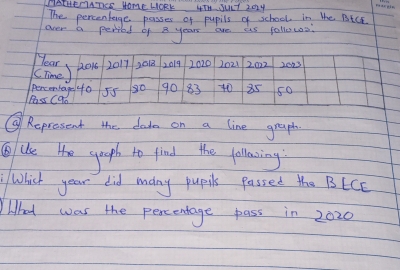 MATHEMATICS HOMEWORK 4TH JULY 2024
The percentage passes of pupils of school in the BECE
over a period of 8 years are as follows:
Year (Time) 2016 2017 2018 2019 2020 2021 2022 2023
Percentage Pass (% 40 55 80 90 83 70 85 50
(a) Represent the data on a line graph.
(b) Use the graph to find the following:
i Which year did many pupils passed the BECE
) What was the percentage pass in 2020